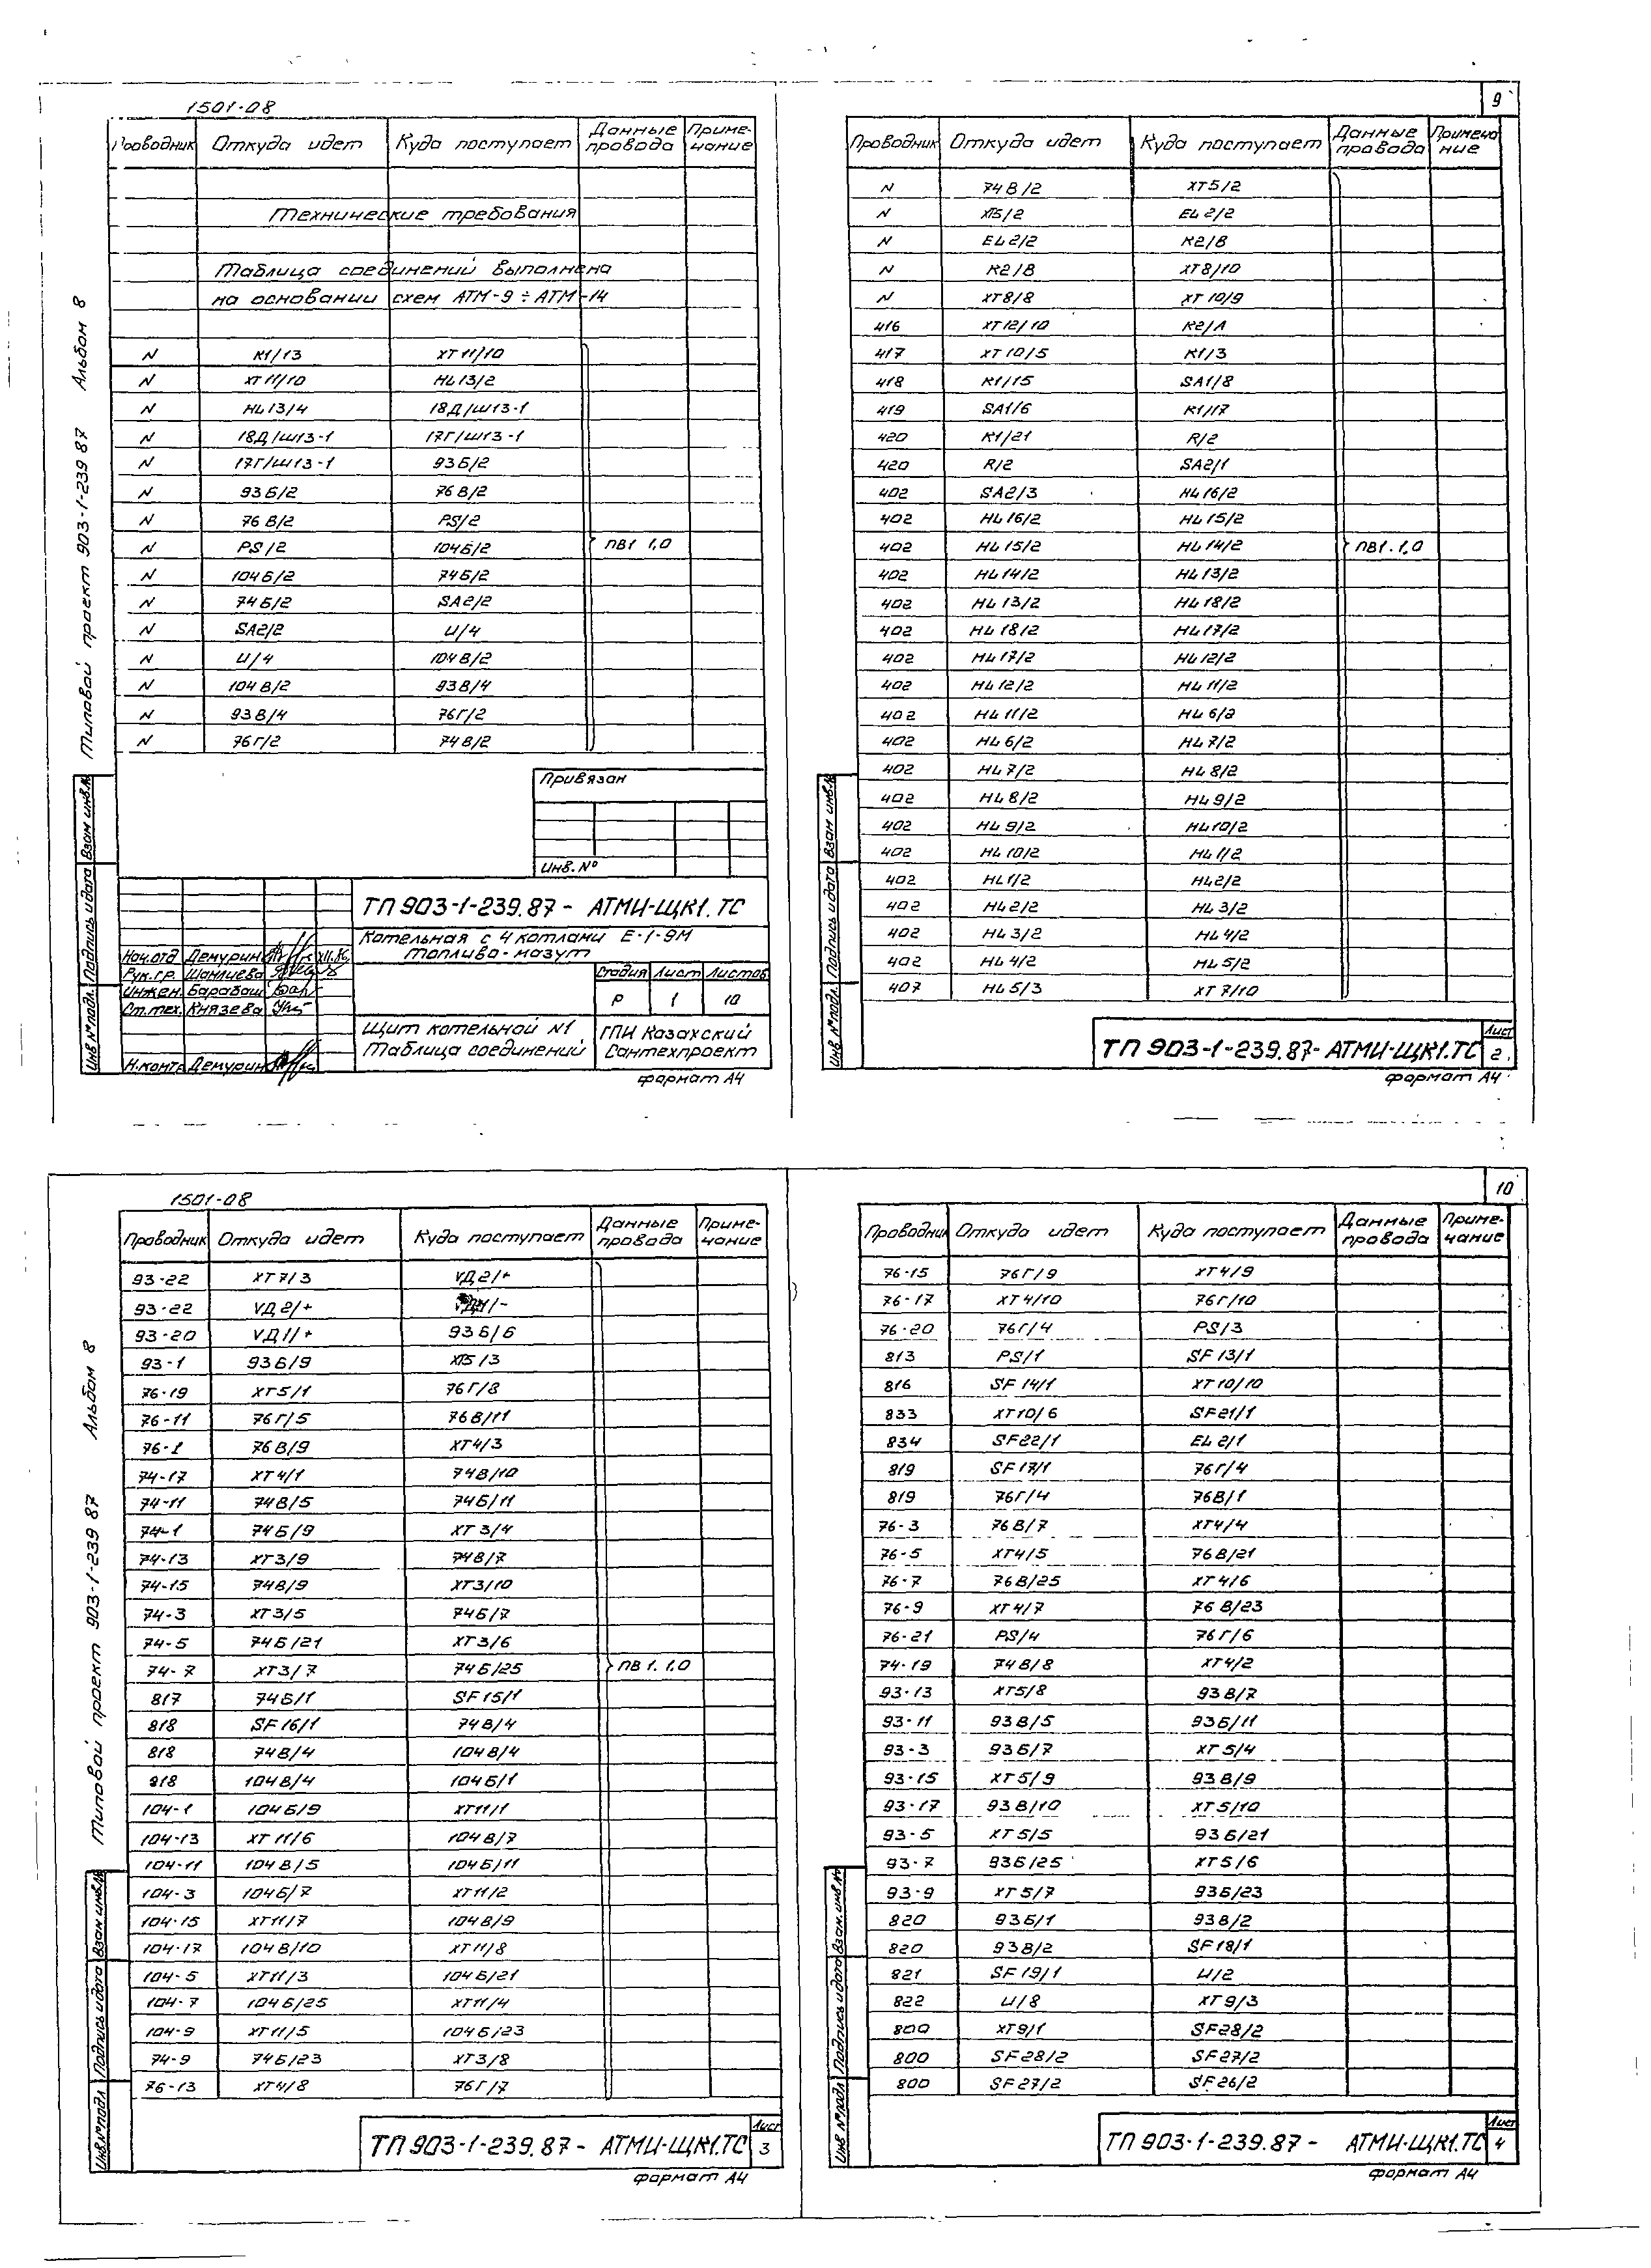 1501-08
Проводник Откуда идет Куда поступает Данные провода Примечание
Технические требования
Таблица соединений выполнена
на основании схем АТМ-9÷АТМ-14
N К1/13 ХТ11/10
N ХТ11/10 HL13/2
N HL13/4 18Д/Ш13-1
N 18Д/Ш13-1 17Г/Ш13-1
N 17Г/Ш13-1 93Б/2
N 93Б/2 76В/2
N 76В/2 PS/2
N PS/2 104Б/2 ПВ1 1,0
N 104Б/2 74Б/2
N 74Б/2 SA2/2
N SA2/2 U/4
N U/4 104В/2
N 104В/2 93В/4
N 93В/4 76Г/2
N 76Г/2 74В/2
Типовой проект 903-1-239 87 Альбом 8
Привязан
Инв. №
ТП 903-1-239.87 - АТМИ-ЩК1.ТС
Котельная с 4 котлами Е-1-9М
Топливо-мазут
Нач.отд Демурин XII.86
Рук.гр. Шанлиева
Инжен. Барабаш
Ст.тех. Князева
Н.контр Демурин
Стадия Лист Листов
Р 1 10
Щит котельной N1
Таблица соединений
ГПИ Казахский
Сантехпроект
Инв № подл. Подпись и дата Взам инв. №
формат А4
9
Проводник Откуда идет Куда поступает Данные провода Примечание
N 74В/2 ХТ5/2
N ХТ5/2 EL2/2
N EL2/2 К2/В
N К2/В ХТ8/10
N ХТ8/8 ХТ10/9
416 ХТ12/10 К2/А
417 ХТ10/5 К1/3
418 К1/15 SA1/8
419 SA1/6 К1/17
420 К1/21 R/2
420 R/2 SA2/1
402 SA2/3 HL16/2
402 HL16/2 HL15/2
402 HL15/2 HL14/2 ПВ1.1,0
402 HL14/2 HL13/2
402 HL13/2 HL18/2
402 HL18/2 HL17/2
402 HL17/2 HL12/2
402 HL12/2 HL11/2
402 HL11/2 HL6/2
402 HL6/2 HL7/2
402 HL7/2 HL8/2
402 HL8/2 HL9/2
402 HL9/2 HL10/2
402 HL10/2 HL1/2
402 HL1/2 HL2/2
402 HL2/2 HL3/2
402 HL3/2 HL4/2
402 HL4/2 HL5/2
407 HL5/3 ХТ7/10
Инв № подл. Подпись и дата Взам инв.№
ТП 903-1-239.87- АТМИ-ЩК1.ТС Лист 2
формат А4
1501-08
Проводник Откуда идет Куда поступает Данные провода Примечание
93-22 ХТ7/3 VД2/+
93-22 VД2/+ VД1/-
93-20 VД1/+ 93Б/6
93-1 93Б/9 ХТ5/3
76-19 ХТ5/1 76Г/8
76-11 76Г/5 76В/11
76-1 76В/9 ХТ4/3
74-17 ХТ4/1 74В/10
74-11 74В/5 74Б/11
74-1 74Б/9 ХТ3/4
74-13 ХТ3/9 74В/7
74-15 74В/9 ХТ3/10
74-3 ХТ3/5 74Б/7
74-5 74Б/21 ХТ3/6
74-7 ХТ3/7 74Б/25 ПВ1. 1,0
817 74Б/1 SF15/1
818 SF16/1 74В/4
818 74В/4 104В/4
818 104В/4 104Б/1
104-1 104Б/9 ХТ11/1
104-13 ХТ11/6 104В/7
104-11 104В/5 104Б/11
104-3 104Б/7 ХТ11/2
104-15 ХТ11/7 104В/9
104-17 104В/10 ХТ11/8
104-5 ХТ11/3 104Б/21
104-7 104Б/25 ХТ11/4
104-9 ХТ11/5 104Б/23
74-9 74Б/23 ХТ3/8
76-13 ХТ4/8 76Г/7
Типовой проект 903-1-239 87 Альбом 8
Инв.№ подл Подпись и дата Взам инв.№
ТП 903-1-239.87 - АТМИ-ЩК1.ТС Лист 3
формат А4
10
Проводник Откуда идет Куда поступает Данные провода Примечание
76-15 76Г/9 ХТ4/9
76-17 ХТ4/10 76Г/10
76-20 76Г/4 PS/3
813 PS/1 SF13/1
816 SF14/1 ХТ10/10
833 ХТ10/6 SF21/1
834 SF22/1 EL2/1
819 SF17/1 76Г/4
819 76Г/4 76В/1
76-3 76В/7 ХТ4/4
76-5 ХТ4/5 76В/21
76-7 76В/25 ХТ4/6
76-9 ХТ4/7 76В/23
76-21 PS/4 76Г/6
74-19 74В/8 ХТ4/2
93-13 ХТ5/8 93В/7
93-11 93В/5 93Б/11
93-3 93Б/7 ХТ5/4
93-15 ХТ5/9 93В/9
93-17 93В/10 ХТ5/10
93-5 ХТ5/5 93Б/21
93-7 93Б/25 ХТ5/6
93-9 ХТ5/7 93Б/23
820 93Б/1 93В/2
820 93В/2 SF18/1
821 SF19/1 U/2
822 U/8 ХТ9/3
800 ХТ9/1 SF28/2
800 SF28/2 SF27/2
800 SF27/2 SF26/2
Инв № подл Подпись и дата Взам.инв №
ТП 903-1-239.87 - АТМИ-ЩК1.ТС Лист 4
формат А4